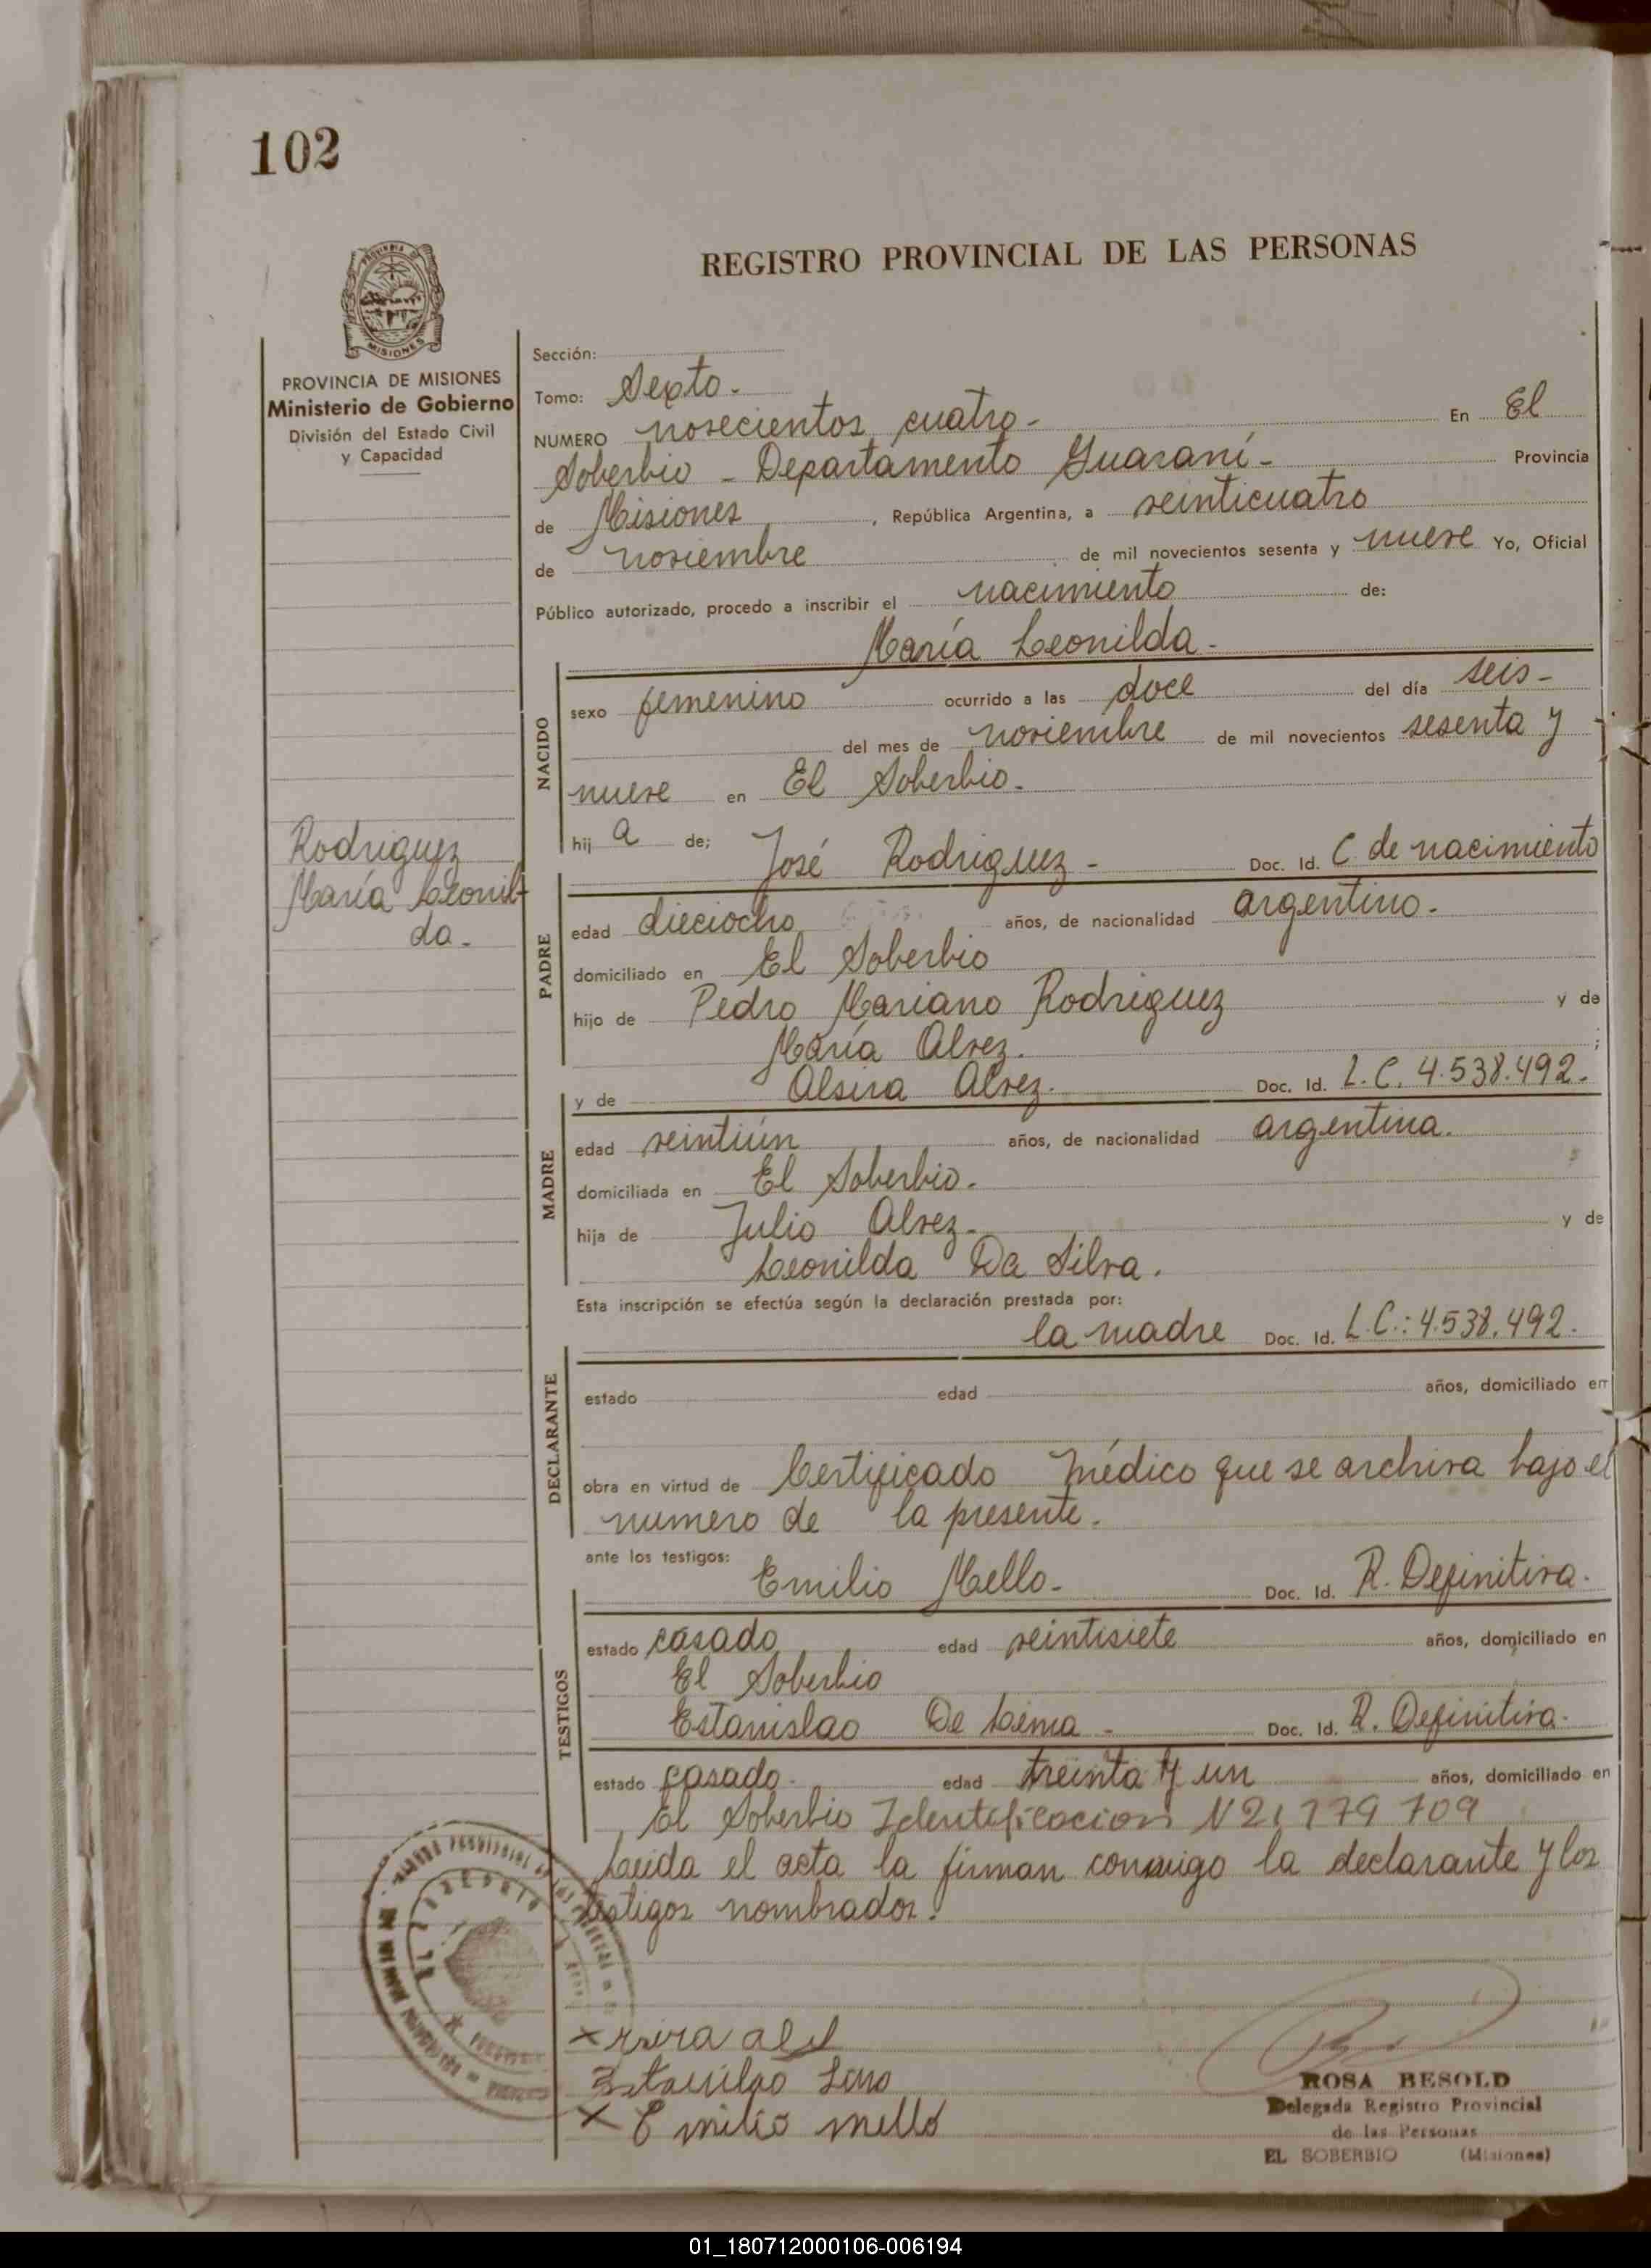 102
REGISTRO PROVINCIAL DE LAS PERSONAS
MISIONES
PROVINCIA DE MISIONES
Ministerio de Gobierno
División del Estado Civil
y Capacidad
Sección:
Tomo: Sexto.-
NUMERO novecientos cuatro- En El
Soberbio - Departamento Guaraní- Provincia
de Misiones, República Argentina, a veinticuatro
de noviembre de mil novecientos sesenta y nueve Yo, Oficial
Público autorizado, procedo a inscribir el nacimiento de:
María Leonilda-
NACIDO
sexo femenino ocurrido a las doce del día seis-
del mes de noviembre de mil novecientos sesenta y
nueve en El Soberbio.
hij a de; José Rodriguez - Doc. Id. C. de nacimiento
Rodriguez
María Leonil-
da.
PADRE
edad dieciocho años, de nacionalidad argentino.
domiciliado en El Soberbio
hijo de Pedro Mariano Rodriguez y de
María Alvez. ;
y de Alsira Alvez. Doc. Id. L.C. 4.538.492.
MADRE
edad veintiún años, de nacionalidad argentina.
domiciliada en El Soberbio.
hija de Julio Alvez. y de
Leonilda Da Silva.
Esta inscripción se efectúa según la declaración prestada por:
la madre Doc. Id. L.C.: 4.538.492.
DECLARANTE
estado edad años, domiciliado en
obra en virtud de Certificado Médico que se archiva bajo el
numero de la presente.
ante los testigos:
Emilio Mello- Doc. Id. R. Definitiva.
TESTIGOS
estado casado edad veintisiete años, domiciliado en
El Soberbio
Estanislao De Lima - Doc. Id. R. Definitiva.
estado casado. edad treinta y un años, domiciliado en
El Soberbio Identificacion N 21,779 709
Leida el acta la firman conmigo la declarante y los
testigos nombrados.
Emilio mello
ROSA BESOLD
Delegada Registro Provincial
de las Personas
EL SOBERBIO (Misiones)
01_180712000106-006194